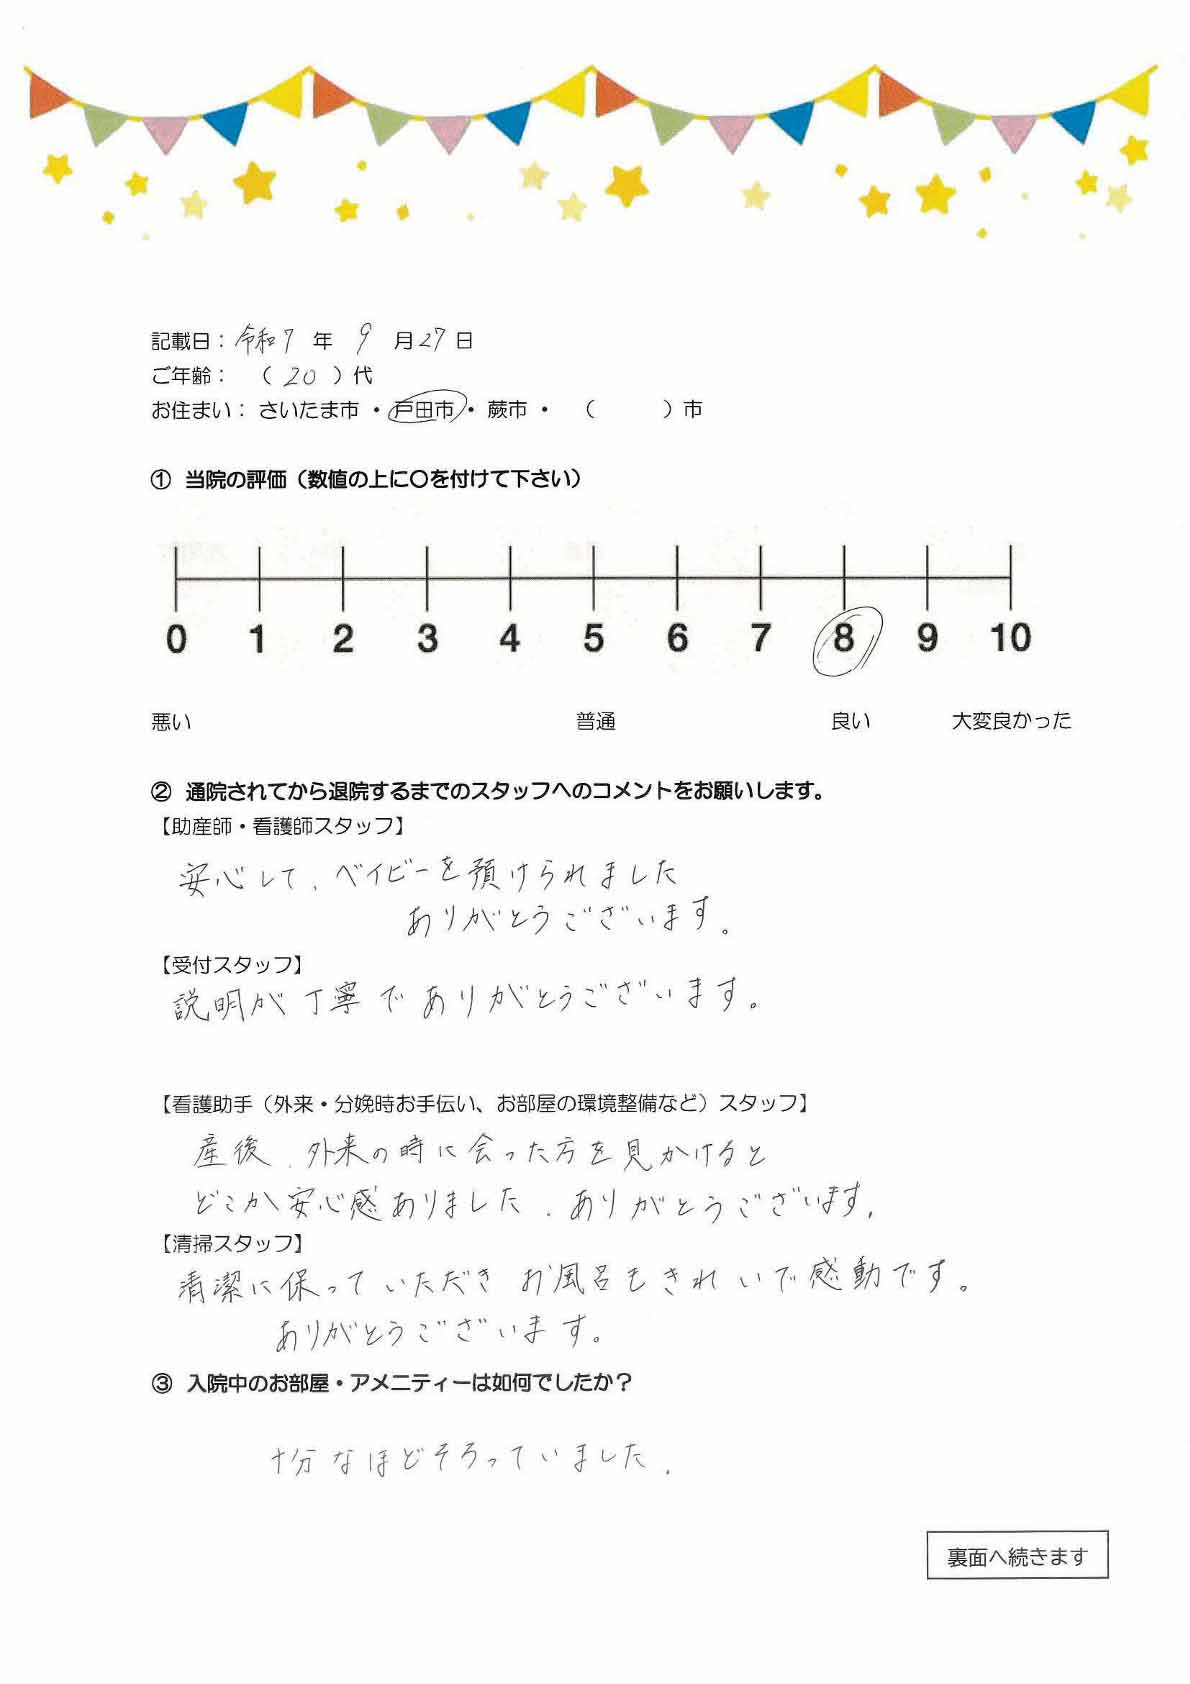 記載日：令和7年 9月27日
ご年齢：（20）代
お住まい：さいたま市・戸田市・蕨市・（　　　）市
① 当院の評価（数値の上に〇を付けて下さい）
0 1 2 3 4 5 6 7 8 9 10
悪い 普通 良い 大変良かった
② 通院されてから退院するまでのスタッフへのコメントをお願いします。
【助産師・看護師スタッフ】
安心して、ベイビーを預けられました
ありがとうございます。
【受付スタッフ】
説明が丁寧でありがとうございます。
【看護助手（外来・分娩時お手伝い、お部屋の環境整備など）スタッフ】
産後、外来の時に会った方を見かけると
どこか安心感ありました。ありがとうございます。
【清掃スタッフ】
清潔に保っていただきお風呂もきれいで感動です。
ありがとうございます。
③ 入院中のお部屋・アメニティーは如何でしたか？
十分なほどそろっていました。
裏面へ続きます